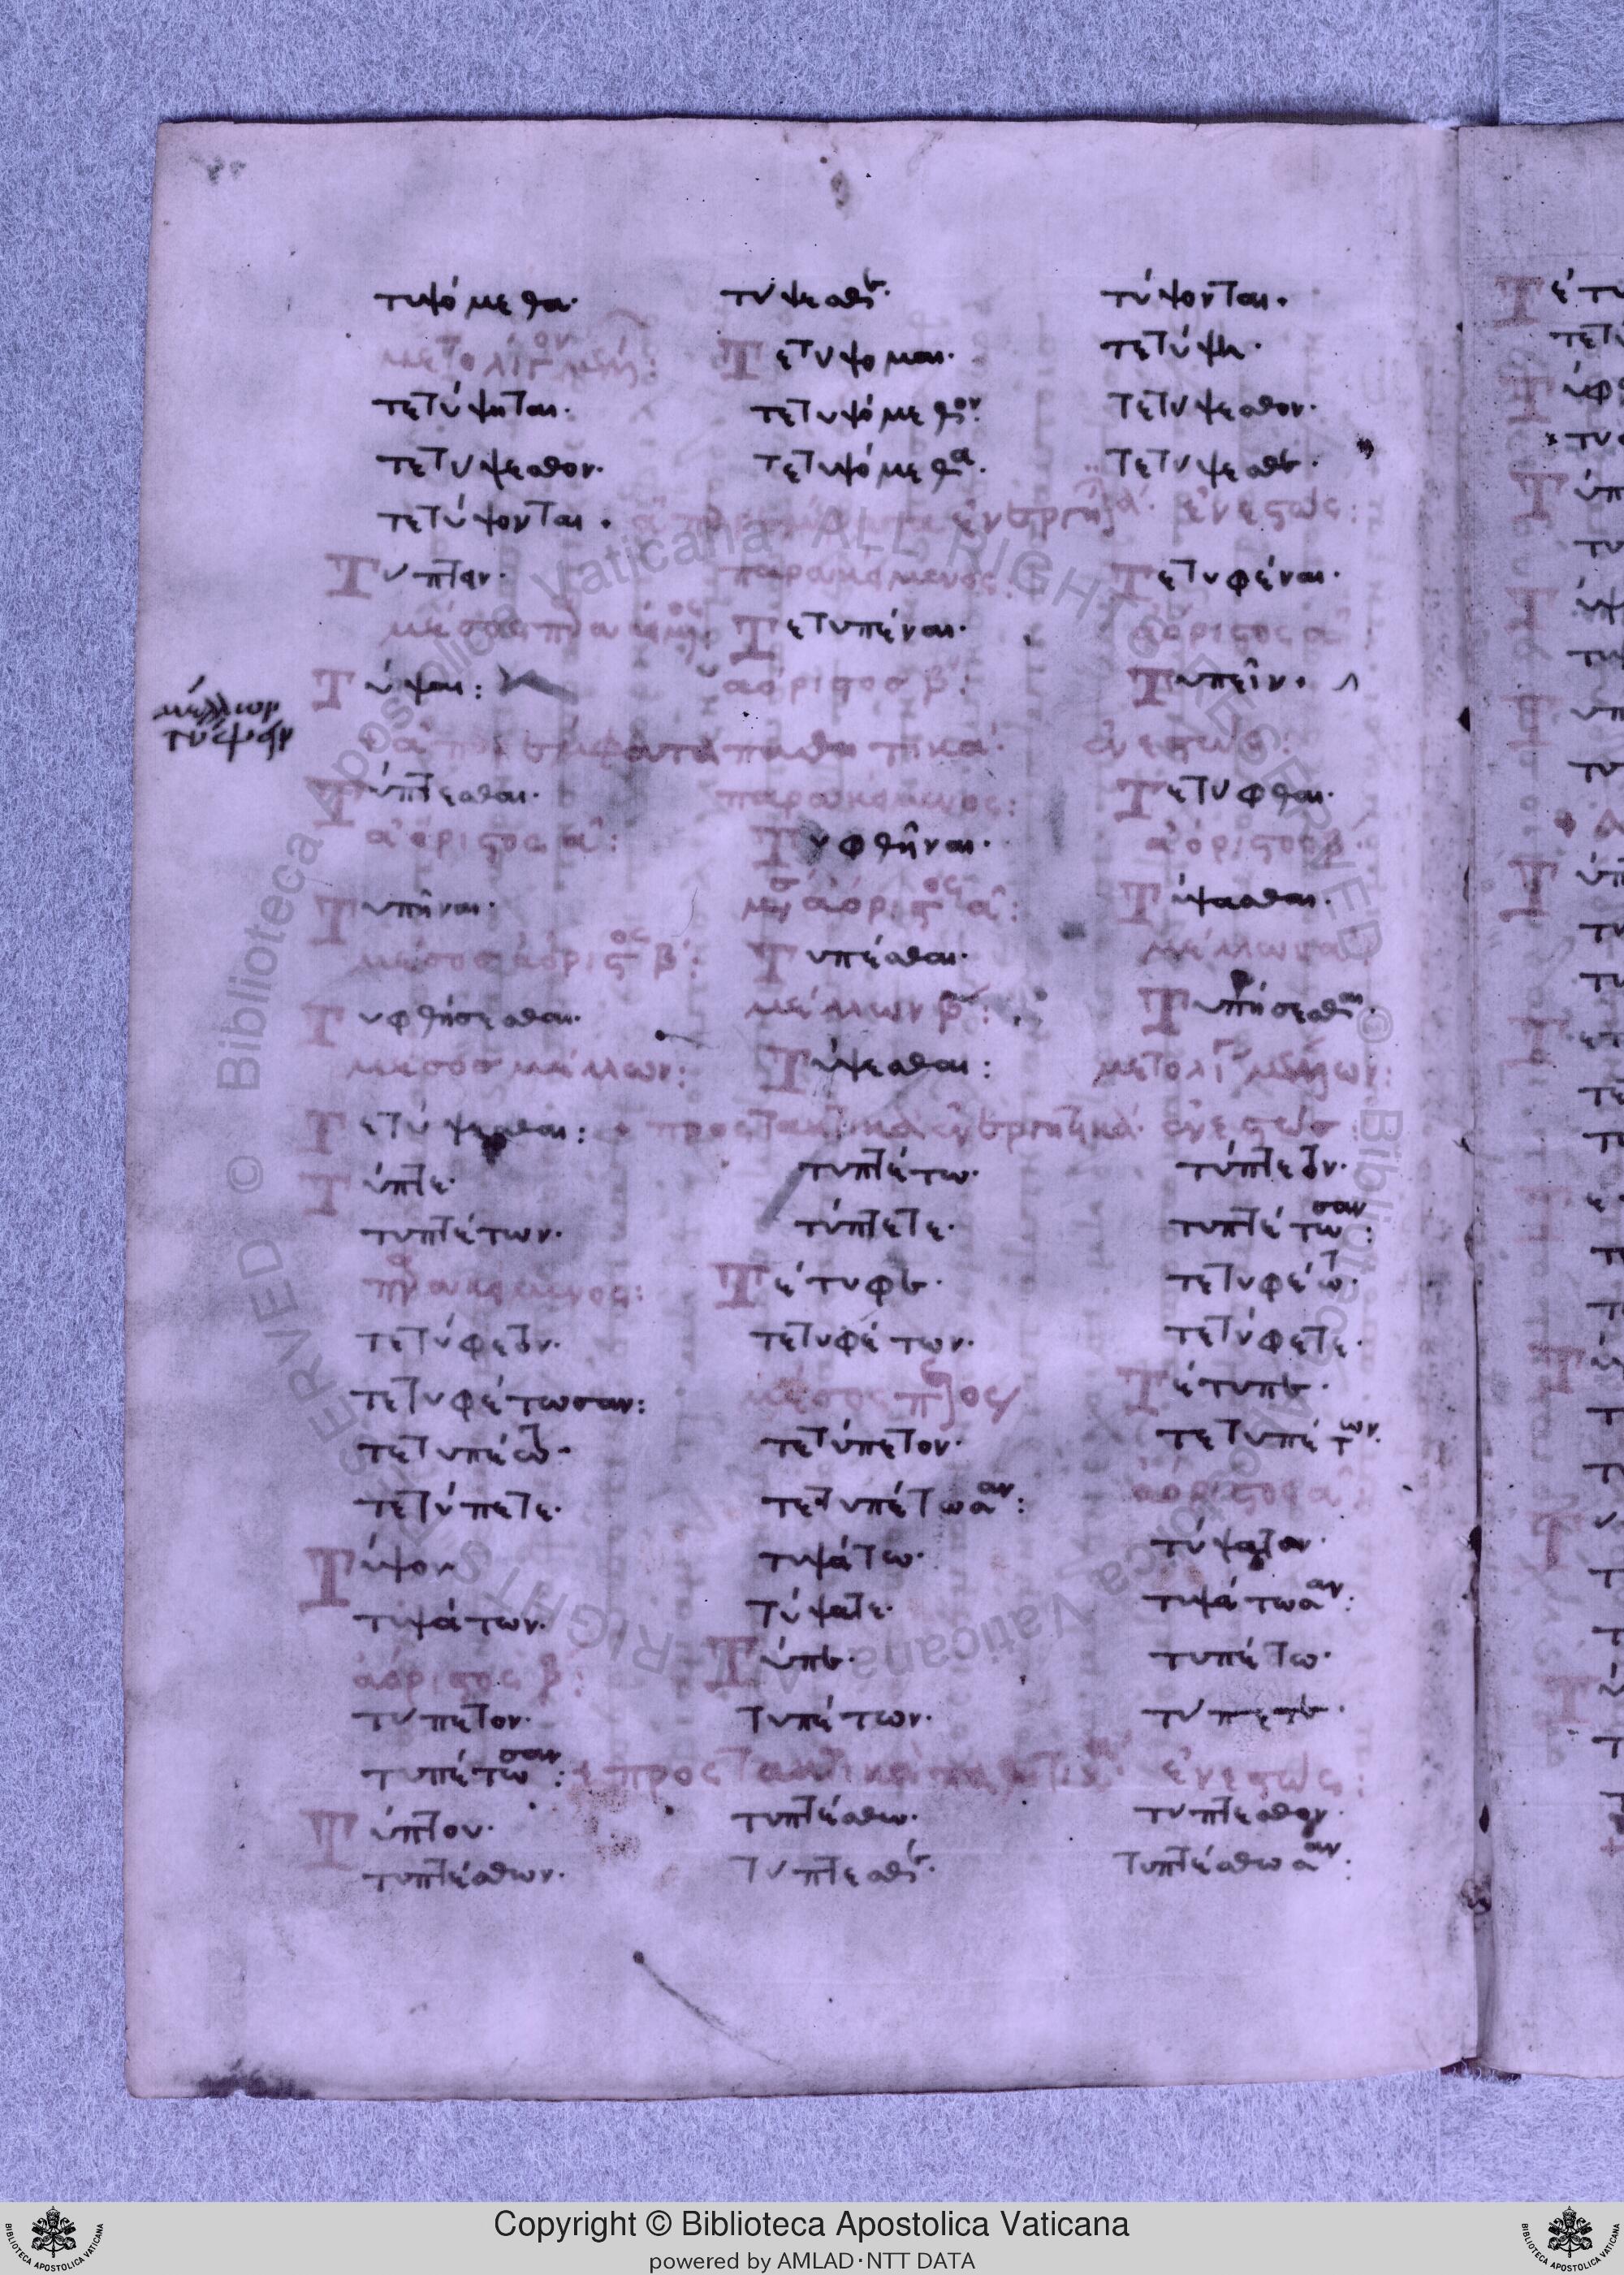 τυψόμεθα· τύψεσθε· τύψονται·
μετ' ὀλίγον μέλλων: Τετύψομαι· τετύψη·
τετύψηται· τετυψόμεθον· τετύψεσθον·
τετύψεσθον· τετυψόμεθα· τετύψεσθε·
τετύψονται· ἀπαρέμφατα ἐνεργητικά· ἐνεστώς:
Τύπτειν· παρακείμενος Τετυφέναι·
μέσος παρακείμενος Τετυπέναι· ἀόριστος α
Τύψαι: ἀόριστος β: Τυπεῖν·
μέλλων
τύψειν
ἀπαρέμφατα παθητικά· ἐνεστώς:
Τύπτεσθαι· παρακείμενος: Τετύφθαι·
ἀόριστος α: Τυφθῆναι· ἀόριστος β
Τυπῆναι· μέσος ἀόριστος α: Τύψασθαι·
μέσος ἀόριστος β: Τυπέσθαι· μέλλων α
Τυφθήσεσθαι· μέλλων β: Τυπήσεσθαι·
μέσος μέλλων: Τύψεσθαι: μετ' ὀλίγον μέλλων:
Τετύψεσθαι: προστακτικὰ ἐνεργητικά· ἐνεστώς:
Τύπτε· τυπτέτω· τύπτετον·
τυπτέτων· τύπτετε· τυπτέτωσαν:
παρακείμενος: Τέτυφε· τετυφέτω·
τετύφετον· τετυφέτων· τετύφετε·
τετυφέτωσαν: μέσος παρακείμενος Τέτυπε·
τετυπέτω· τετύπετον· τετυπέτων·
τετύπετε· τετυπέτωσαν: ἀόριστος α
Τύψον τυψάτω· τύψατον·
τυψάτων· τύψατε· τυψάτωσαν:
ἀόριστος β: Τύπε· τυπέτω·
τύπετον· τυπέτων· τύπετε·
τυπέτωσαν: προστακτικὰ παθητικά· ἐνεστώς:
Τύπτου· τυπτέσθω· τύπτεσθον·
τυπτέσθων· τύπτεσθε· τυπτέσθωσαν:
Copyright © Biblioteca Apostolica Vaticana
powered by AMLAD·NTT DATA